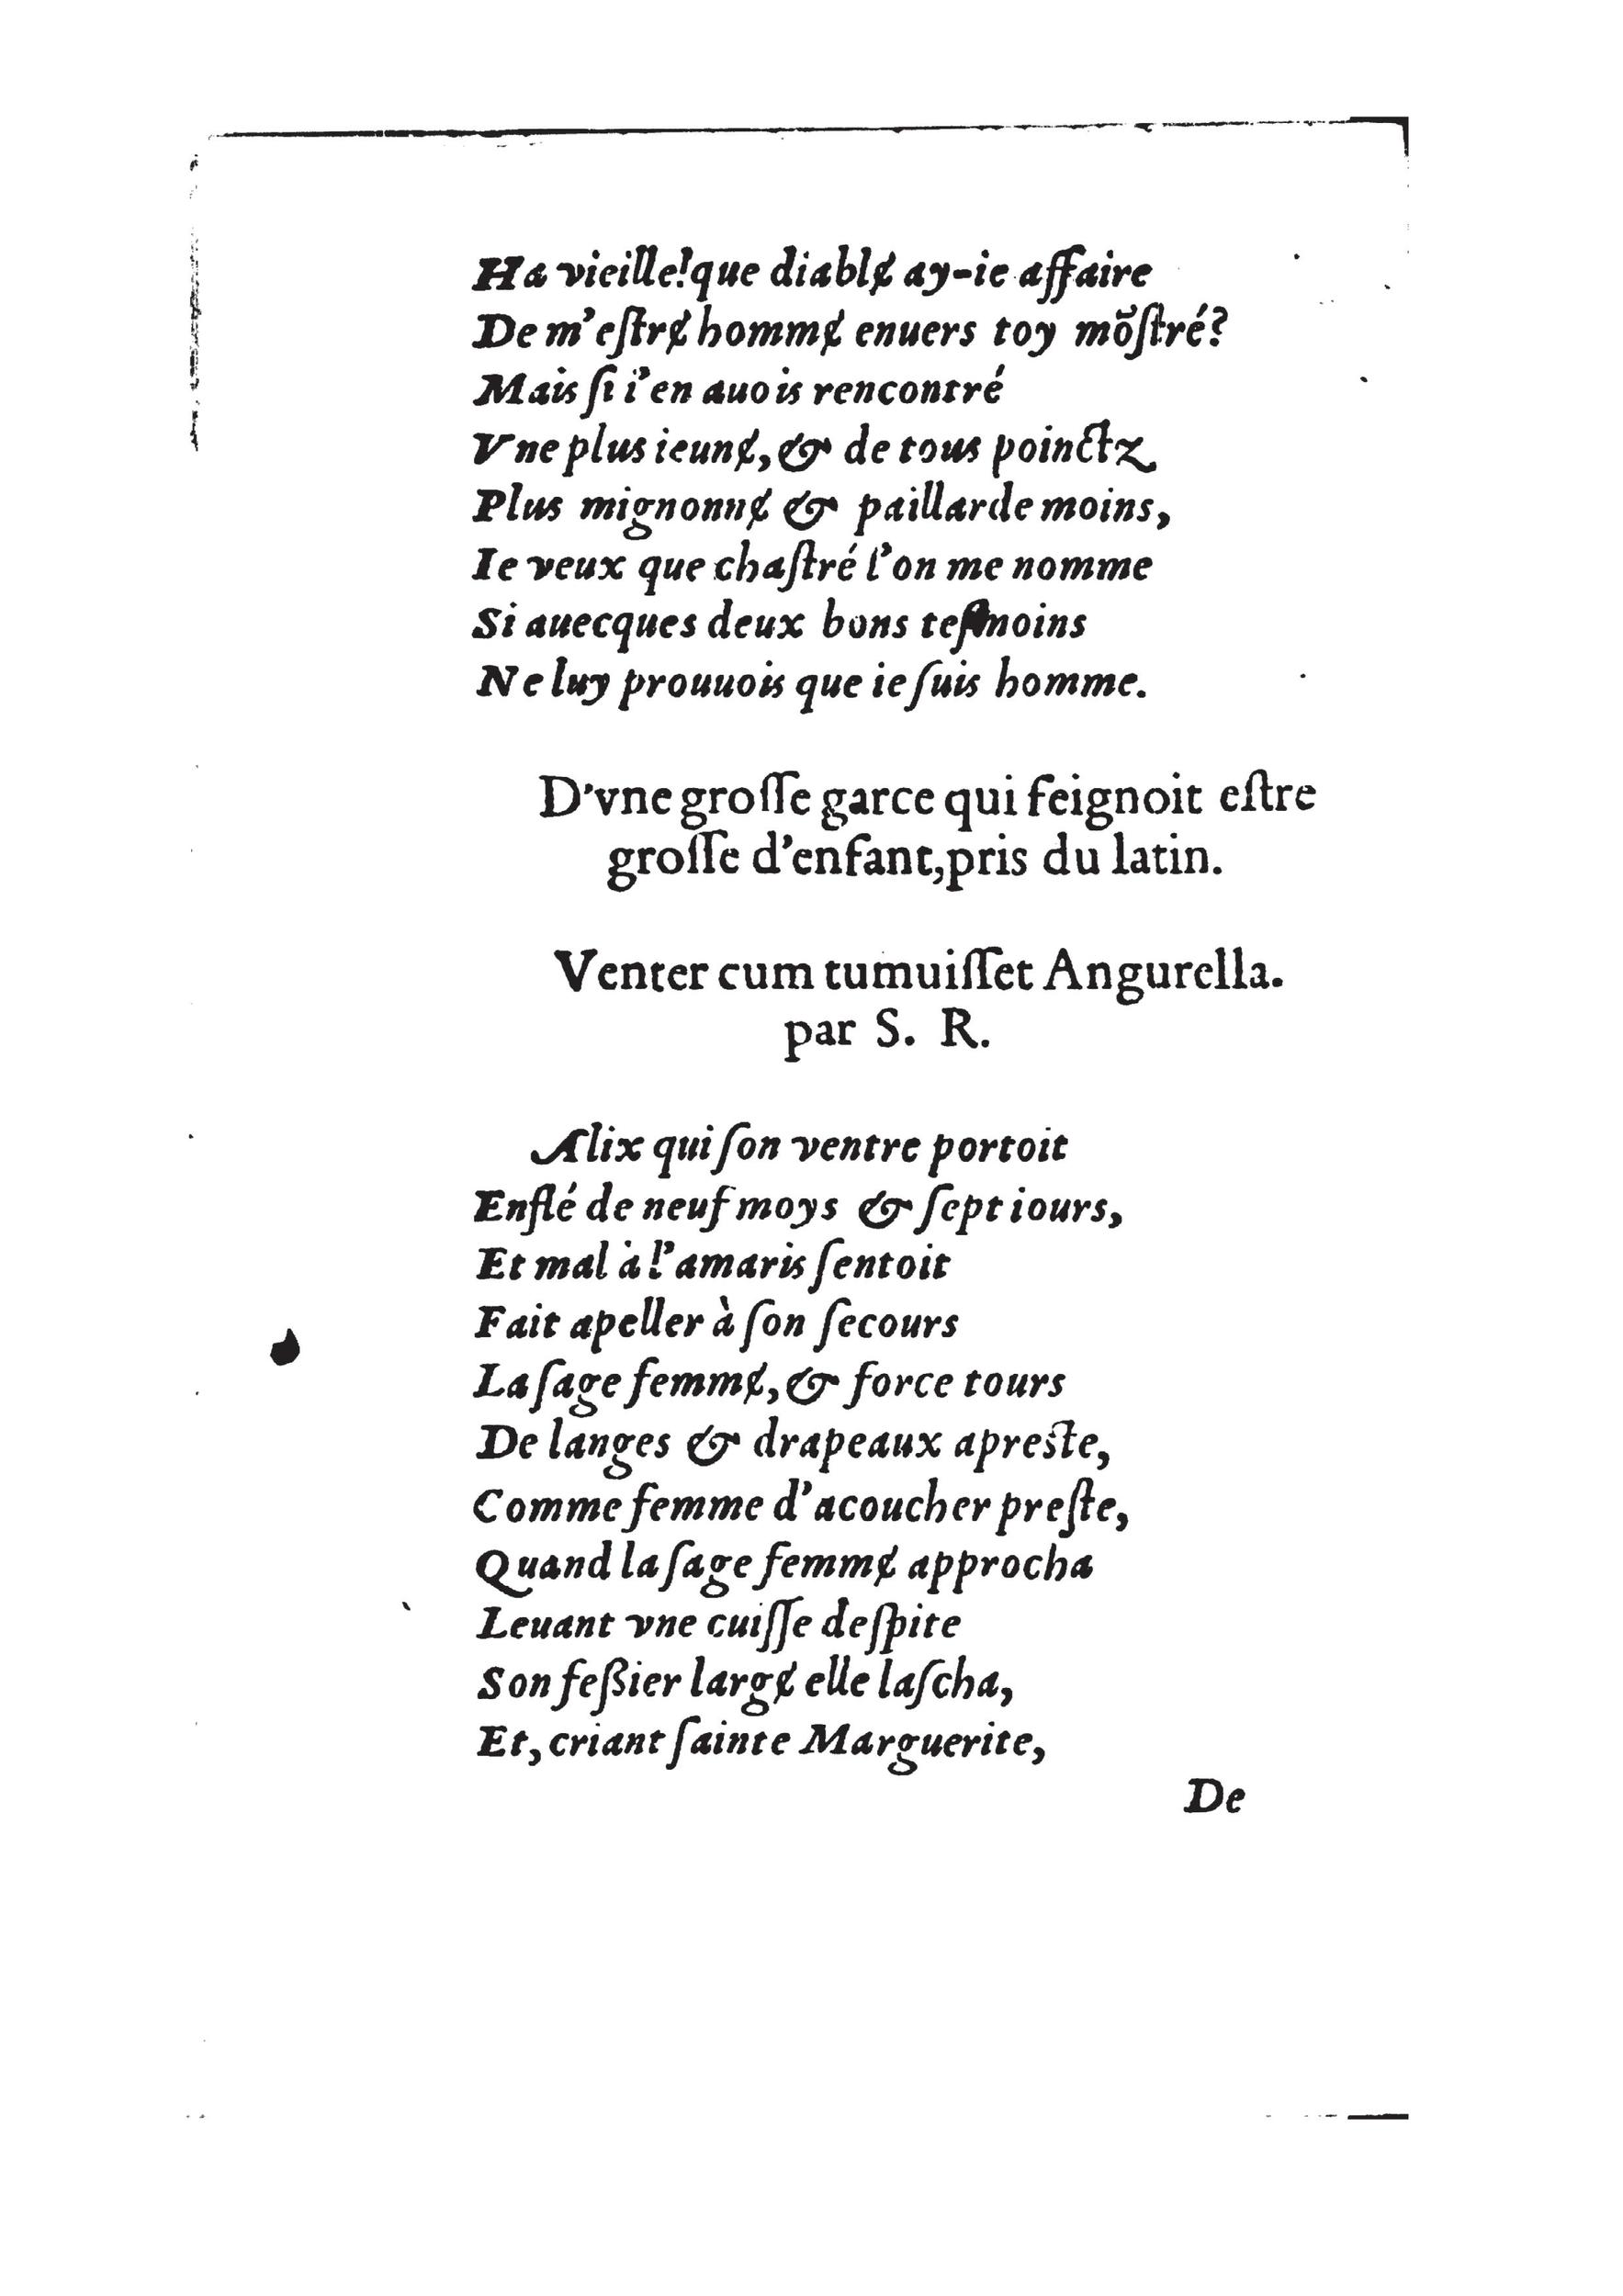 Ha vieille! que diablɇ ay-ie affaire
De m'eſtrɇ hommɇ enuers toy mõſtré?
Mais ſi i'en auois rencontré
Vne plus ieunɇ, & de tous poinctz
Plus mignonnɇ & paillarde moins,
Ie veux que chaſtré l'on me nomme
Si auecques deux bons teſmoins
Ne luy prouuois que ie ſuis homme.
D'vne groſſe garce qui feignoit eſtre
groſſe d'enfant, pris du latin.
Venter cum tumuiſſet Angurella.
par S. R.
Alix qui ſon ventre portoit
Enflé de neuf moys & ſept iours,
Et mal à l'amaris ſentoit
Fait apeller à ſon ſecours
La ſage femmɇ, & force tours
De langes & drapeaux apreſte,
Comme femme d'acoucher preſte,
Quand la ſage femmɇ approcha
Leuant vne cuiſſe deſpite
Son feßier largɇ elle laſcha,
Et, criant ſainte Marguerite,
De